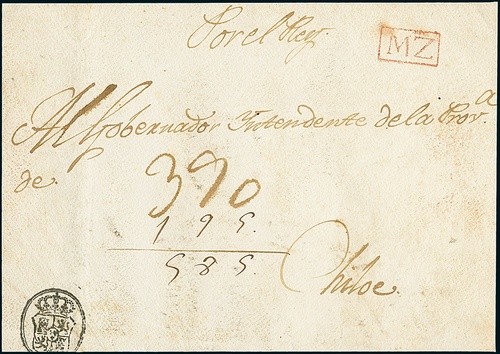 Por el Rey.
MZ
Al Gobernador Intendente de la Prov.a
de
390
195.
585.
Chiloe.